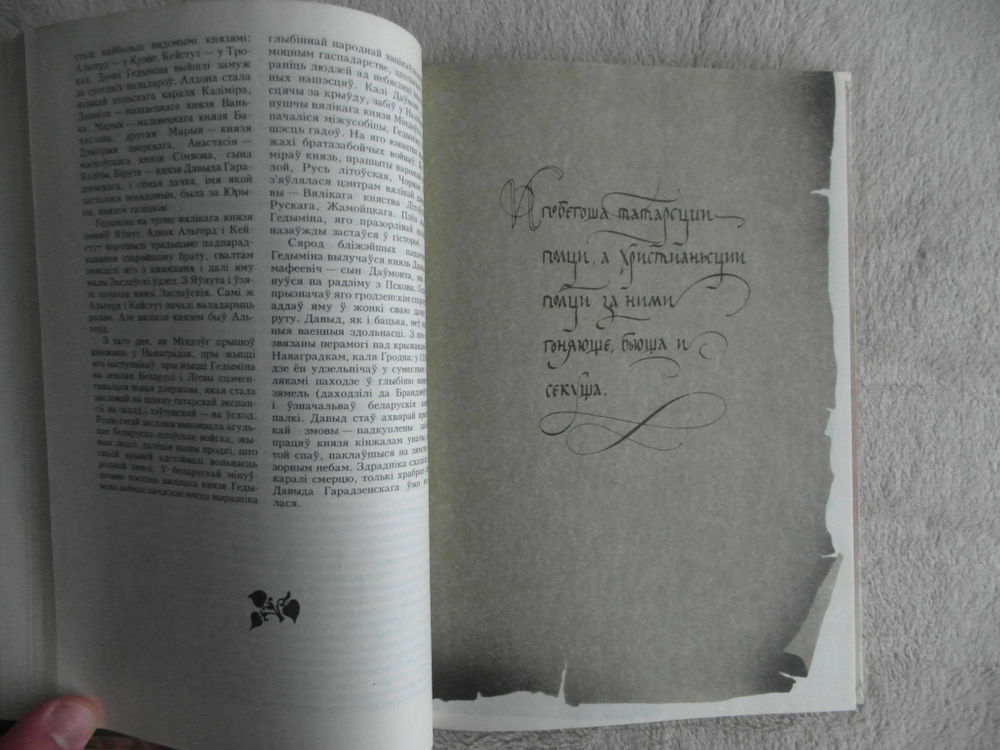 сталі найбольш вядомымі князямі:
Альгерд — у Крэве, Кейстут — у Тро-
ках. Дочкі Гедыміна выйшлі замуж
за суседніх валадароў: Алдона стала
жонкай польскага караля Казіміра,
Даміла — мазавецкага князя Вань-
ка, Марыя — мазавецкага князя Ба-
ляслава, другая Марыя — князя
Дзмітрыя цвярскога, Анастасія —
маскоўскага князя Сімяона, сына
Каліты, Бірута — князя Давыда Гара-
дзенскага, і сёмая дачка, імя якой
засталося невядомым, была за Юры-
ем, князем галіцкім.
Гедыміна на троне вялікага князя
змяніў Яўнут. Аднак Альгерд і Кей-
стут парушылі традыцыю падпарад-
кавання старэйшаму брату, гвалтам
знеслі яго з княжання і далі яму
малы Заслаўскі ўдзел. З Яўнута і ўзя-
лі пачатак князі Заслаўскія. Самі ж
Альгерд і Кейстут пачалі валадарыць
разам. Але вялікім князем быў Аль-
герд.
З таго дня, як Міндоўг прыйшоў
княжыць у Наваградак, пры жыцці
яго наступнікаў, пры жыцці Гедыміна
на землях Беларусі і Літвы сцэмен-
тавалася новая дзяржава, якая стала
засловай на шляху татарскай экспан-
сіі на захад і тэўтонскай — на ўсход.
Ролю гэтай заслоны выконвала агуль-
нае беларуска-літоўскае войска, жы-
выя людзі, далёкія нашы продкі, што
сваёй крывёй адстойвалі вольнасць
роднай зямлі. У беларускай мінуў-
шчыне постаць вялікага князя Геды-
міна займае пачэснае месца выразніка
глыбіннай народнай
моцным гаспадарстве,
раніць людзей ад небяспекі
ных нашэсцяў. Калі Даўмонт,
сцячы за крыўду, забіў у
пушчы вялікага князя Міндоўга
пачаліся міжусобіцы, Гедыміну
шэсць гадоў. На яго юнацтва
жахі братазабойчых войнаў.
міраў князь, прашыты варожай
лой, Русь літоўская, Чорная
з'яўлялася цэнтрам вялікай
вы — Вялікага княства Літоўскага,
Рускага, Жамойцкага. Плён
Гедыміна, яго празорлівай
назаўжды застаўся ў гісторыі
Сярод бліжэйшых
Гедыміна вылучаўся князь Давыд
мафеевіч — сын Даўмонта, які
нуўся на радзіму з Пскова.
прызначыў яго гродзенскім старостам,
аддаў яму ў жонкі сваю дачку
руту. Давыд, як і бацька, меў
ныя ваенныя здольнасці. З яго
звязаны перамогі над крыжакамі
Наваградкам, каля Гродна; у
дзе ён удзельнічаў у сумесным
лякамі паходзе ў глыбіню
зямель (даходзілі да Брандэнбурга)
і ўзначальваў беларускія
палкі. Давыд стаў ахвярай
кай змовы — падкуплены
працяў князя кінжалам уначы,
той спаў, паклаўшыся на зямлю
зорным небам. Здрадніка
каралі смерцю, толькі храбрага
Давыда Гарадзенскага ўжо не
лася.
И побегоша татарсции
полци, а христианьсции
полци за ними
гоняюще, бьюща и
секуща.